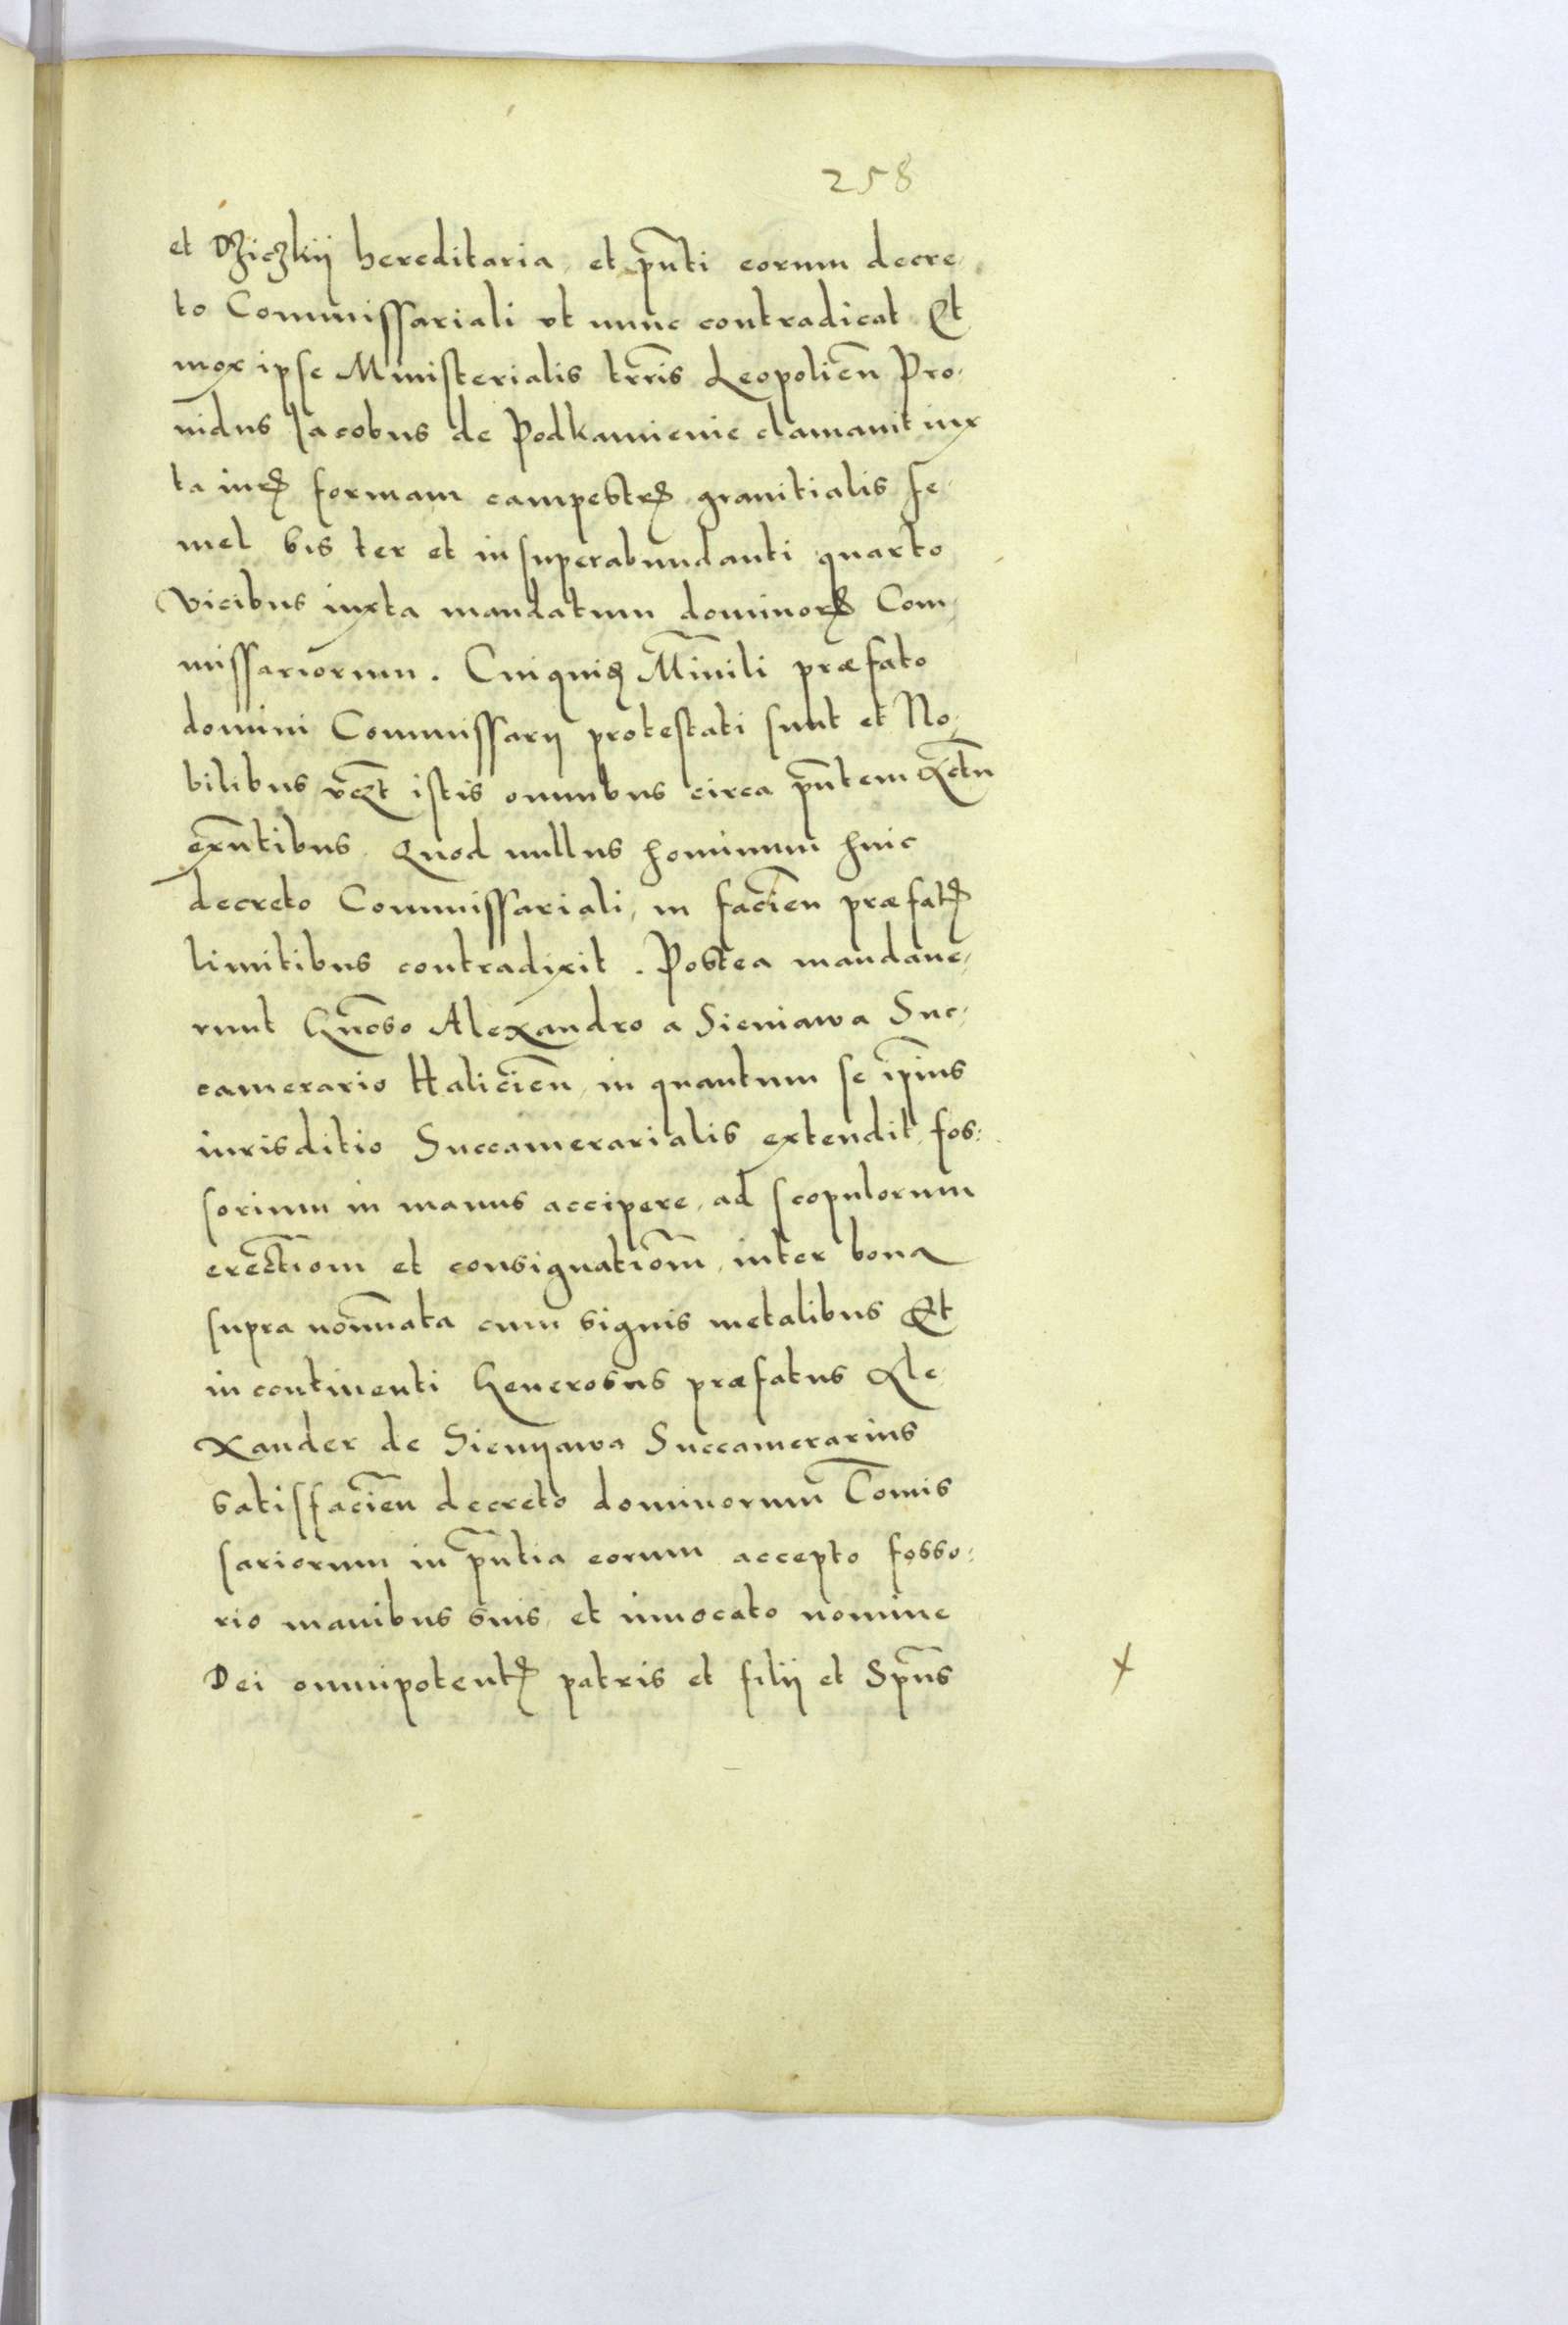 258
et Dziczkij hereditaria, et pñti eorum decre-
to Commissariali vt nunc contradicat Et
mox ipse Ministerialis trr̃is Leopolieñ Pro-
uidus Jacobus de Podkamienie clamauit iux
ta iurꝭ formam campestrꝭ granitialis se-
mel bis ter et in superabundanti quarto
vicibus iuxta mandatum dominorꝝ Com-
missariorum. Cuiquidꝫ Mĩnili præfato
domini Commissarij protestati sunt et No-
bilibus istis omnibus circa pñtem Actũ
exñtibus, Quod nullus hominum huic
decreto Commissariali, in facieñ præfatꝭ
limitibus contradixit. Postea mandaue-
runt Gñoso Alexandro a Sieniawa Suc-
camerario Halicieñ, in quantum se ip̃ius
iurisditio Succamerarialis extendit, fos:
sorium in manus accipere, ad scopulorum
erectiom̃ et consignatiom̃, inter bona
supra noĩnata cum signis metalibus Et
incontinenti Generosus præfatus Ale-
xander de Sienyawa Succamerarius
satisfacieñ decreto dominorum Com̃is
sariorum in pñtia eorum accepto fosso:
rio manibus suis, et inuocato nomine
Dei omnipotentꝭ patris et filij et Spũs
+